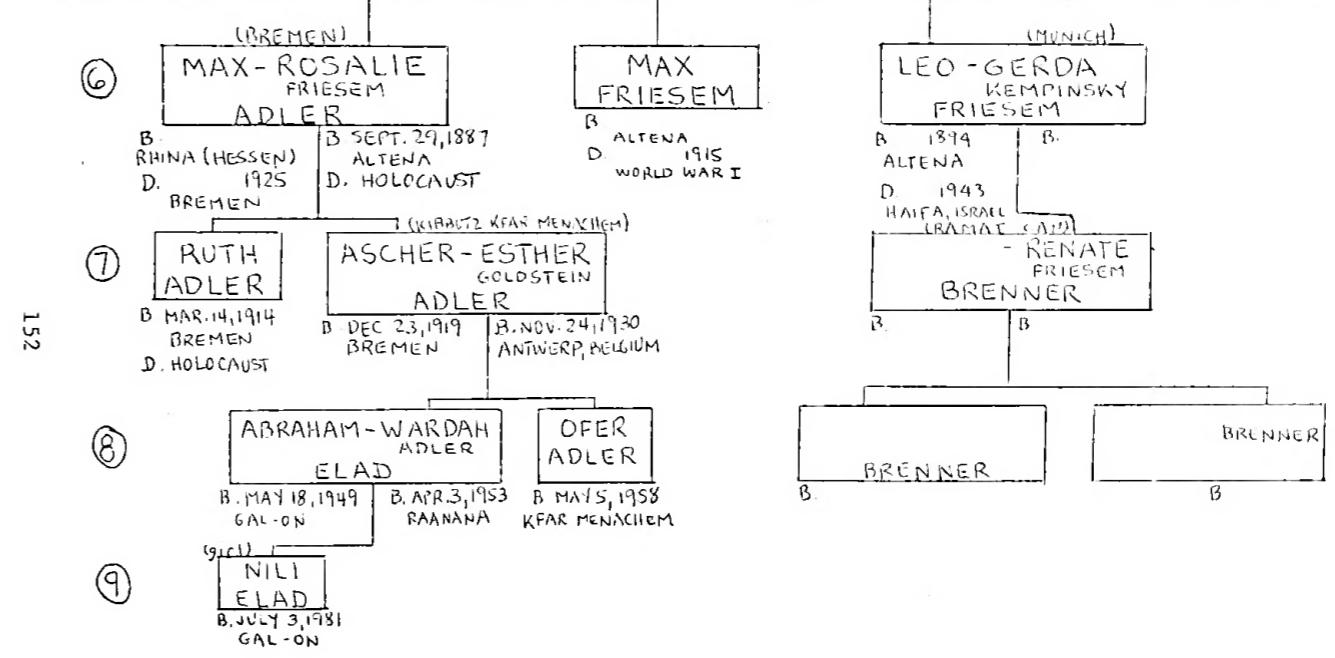 152
6
(BREMEN)
MAX-ROSALIE
FRIESEM
ADLER
B.
RHINA (HESSEN)
D. 1925
BREMEN
B SEPT. 29, 1887
ALTENA
D. HOLOCAUST
MAX
FRIESEM
B
ALTENA
D. 1915
WORLD WAR I
(MUNICH)
LEO-GERDA
KEMPINSKY
FRIESEM
B 1894
ALTENA
D. 1943
HAIFA, ISRAEL
B.
7
RUTH
ADLER
B MAR. 14, 1914
BREMEN
D. HOLOCAUST
(KIBBUTZ KFAR MENACHEM)
ASCHER-ESTHER
GOLDSTEIN
ADLER
B. DEC 23, 1919
BREMEN
B. NOV. 24, 1930
ANTWERP, BELGIUM
(RAMAT GAN)
- RENATE
FRIESEM
BRENNER
B.
B
8
ABRAHAM-WARDAH
ADLER
ELAD
B. MAY 18, 1949
GAL-ON
B. APR. 3, 1953
RAANANA
OFER
ADLER
B MAY 5, 1958
KFAR MENACHEM
BRENNER
B.
BRENNER
B
9
(girl)
NILI
ELAD
B. JULY 3, 1981
GAL-ON